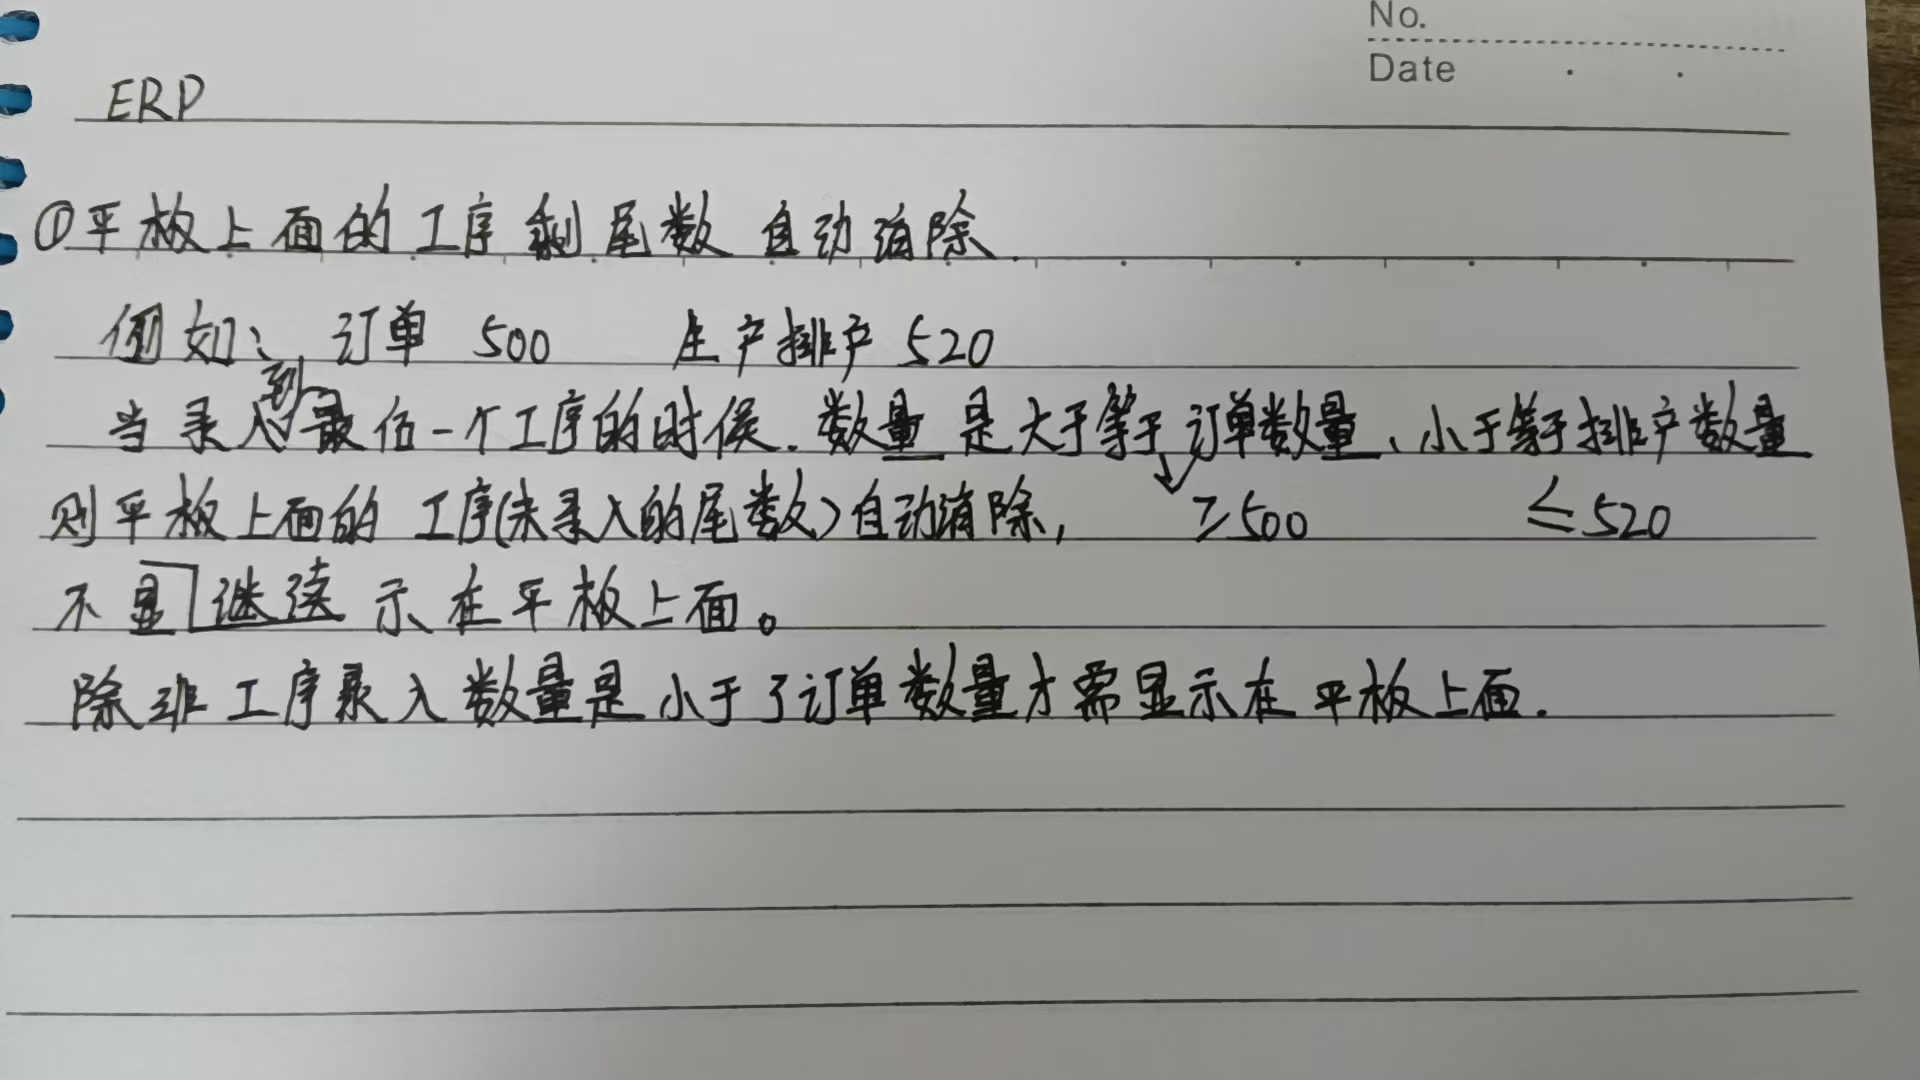 No.
Date
ERP
①平板上面的工序剩尾数自动消除.
例如: 订单 500 生产排产 520
当录入到最后一个工序的时候.数量是大于等于订单数量、小于等于排产数量
则平板上面的工序(未录入的尾数)自动消除, ≥500 ≤520
不显继续示在平板上面。
除非工序录入数量是小于了订单数量才需显示在平板上面.